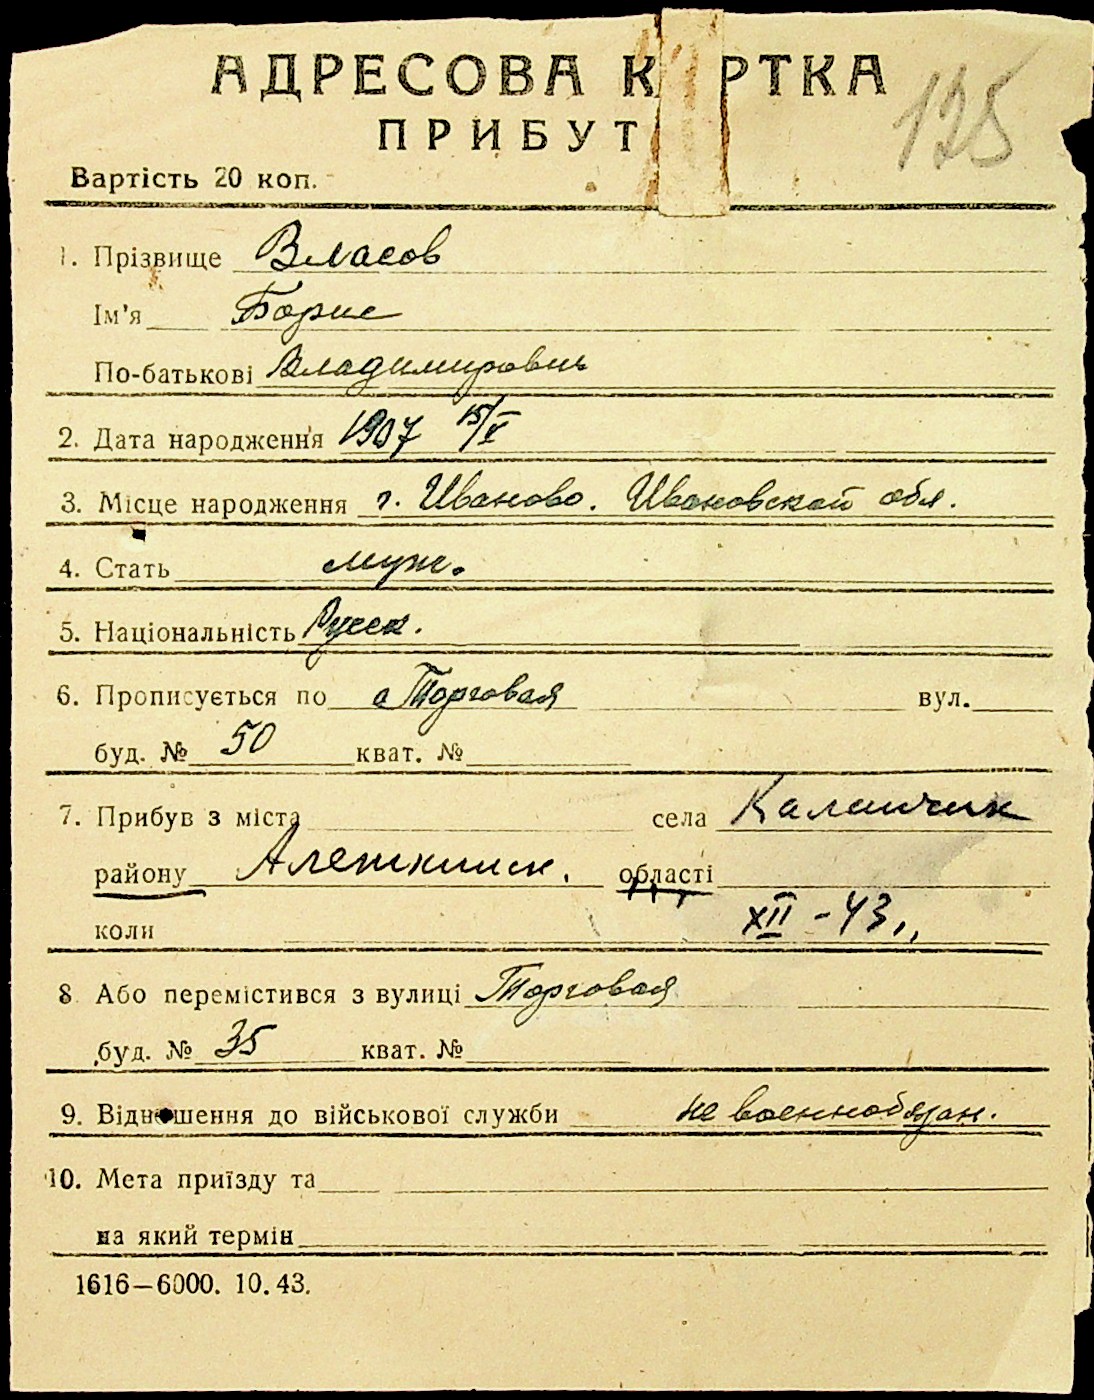 АДРЕСОВА К РТКА
ПРИБУТ
125
Вартість 20 коп.
1. Прізвище Власов
Ім'я Борис
По-батькові Владимирович
2. Дата народження 1907 15/V
3. Місце народження г. Иваново. Ивановской обл.
4. Стать муж.
5. Національність Русск.
6. Прописується по Торговая вул.
буд. № 50 кват. №
7. Прибув з міста села Каланчак
району области
коли XII - 43
8 Або перемістився з вулиці Торговая
буд. № 35 кват. №
9. Відношення до військової служби не военнобязан.
10. Мета приїзду та
на який термін
1616—6000. 10.43.